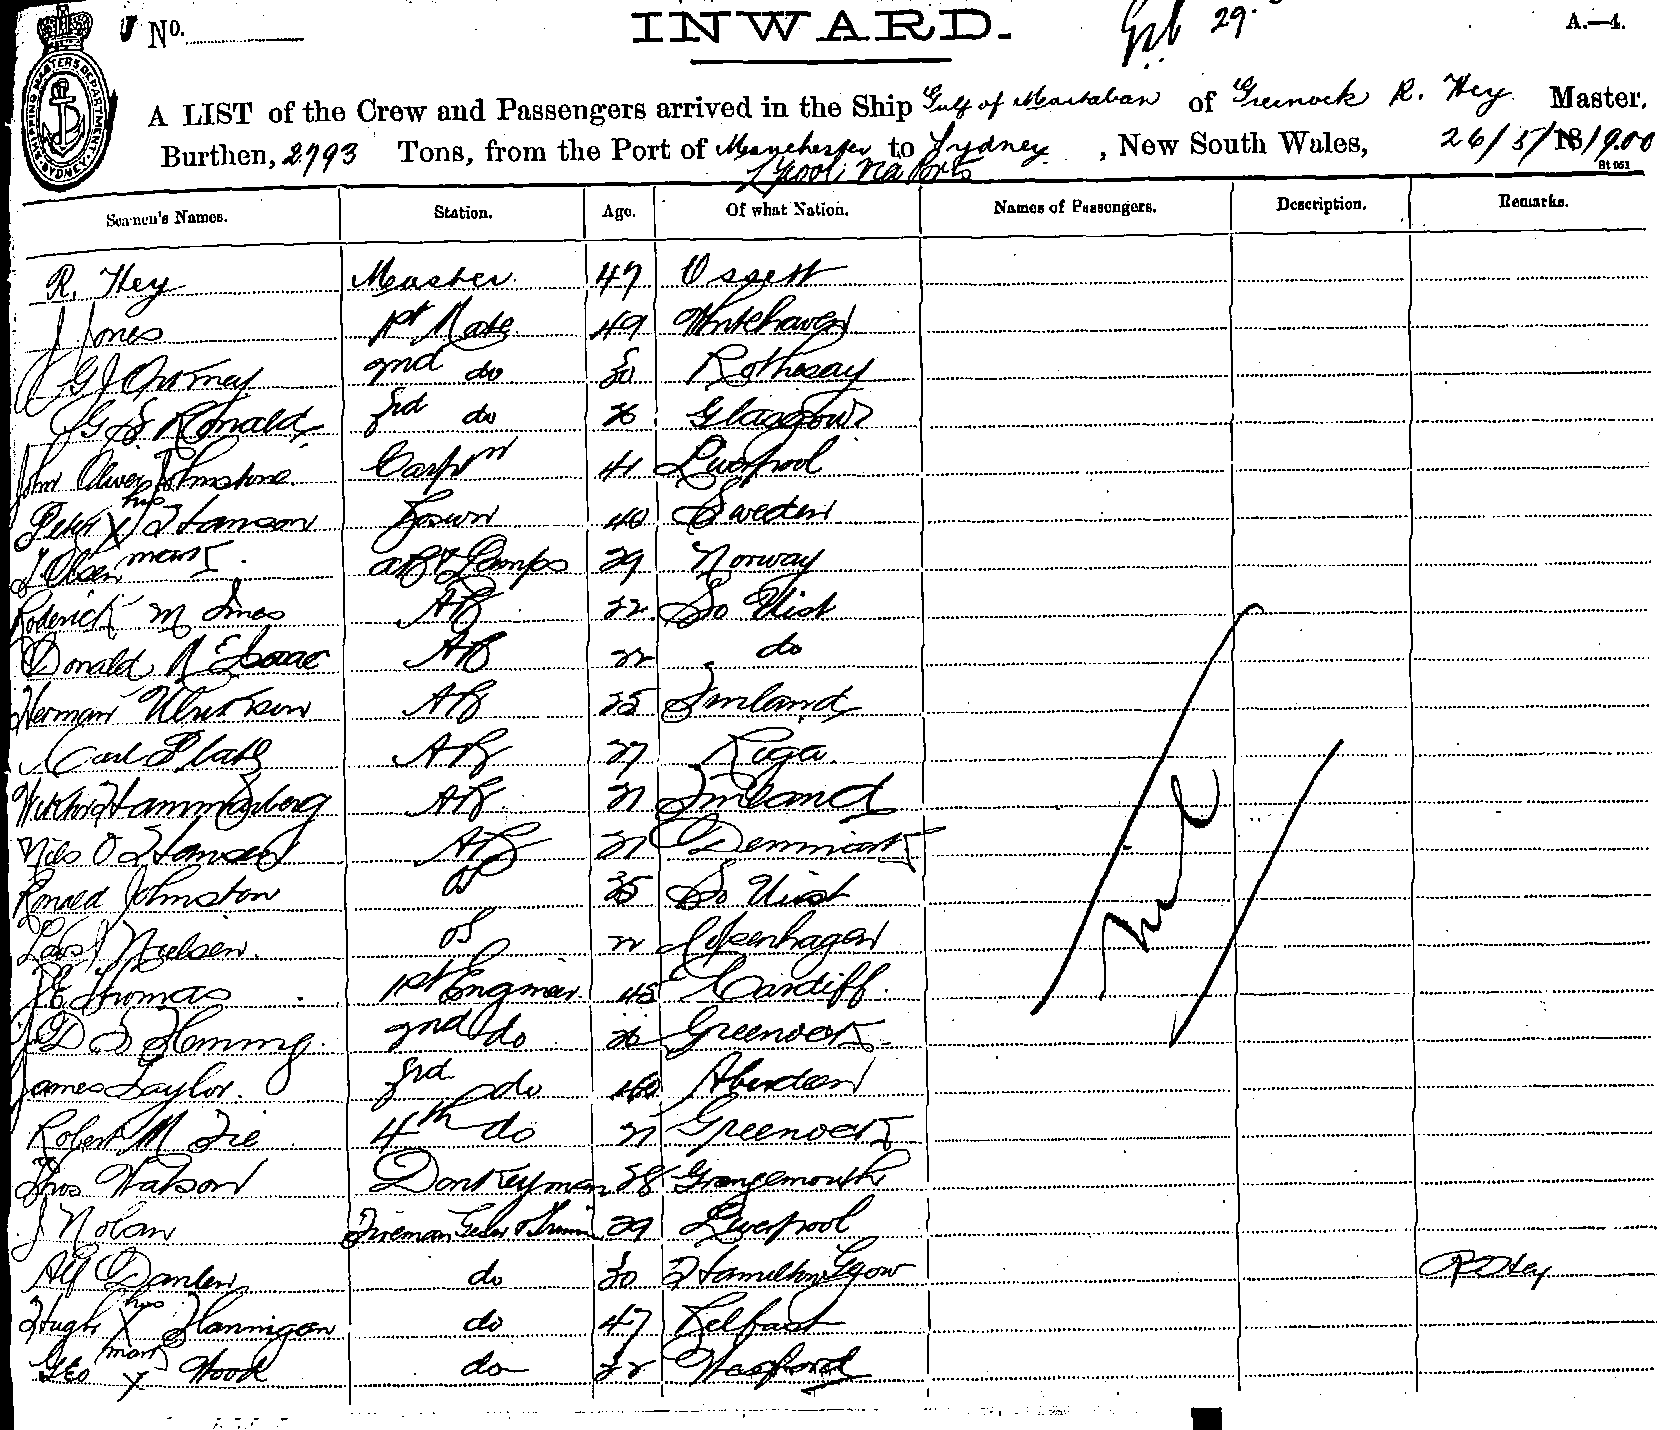 No. INWARD. 29. A.—4.
A LIST of the Crew and Passengers arrived in the Ship Gulf of Martaban of Greenock R. Hey Master.
Burthen, 2793 Tons, from the Port of Manchester to Sydney, New South Wales, 26/5/1900
L'pool via Ports
Seamen's Names. Station. Age. Of what Nation. Names of Passengers. Description. Remarks.
R. Hey Master 47 Ossett
J Jones 1st Mate 49 Whitehaven
2nd do 30 Rothesay
G S Ronald 3rd do 26 Glasgow
John Oliver Johnstone Carptr 41 Liverpool
Peter his X mark Hanson Bosun 40 Sweden
J Olsen AB & Lamps 29 Norway
Roderick M Innes AB 22 So Uist
Donald McIsaac AB 22 do
Herman AB 25 Finland
Carl AB 27 Riga
Hammarberg AB 21 Finland
Nils O Hansen AB 21 Denmark
Ronald Johnston OS 35 So Uist
Lars Nielsen OS 22 Copenhagen
Thomas 1st Engineer 45 Cardiff
D S Fleming 2nd do 26 Greenock
James Taylor 3rd do Aberdeen
Robert M Fie 4th do 21 Greenock
Thos Watson Donkeyman 38 Grangemouth
J Nolan Fireman 29 Liverpool
Alf do 30 Hamilton R Hey
Hugh his X mark Flannigan do 47 Belfast
Geo X Wood do 32
nil